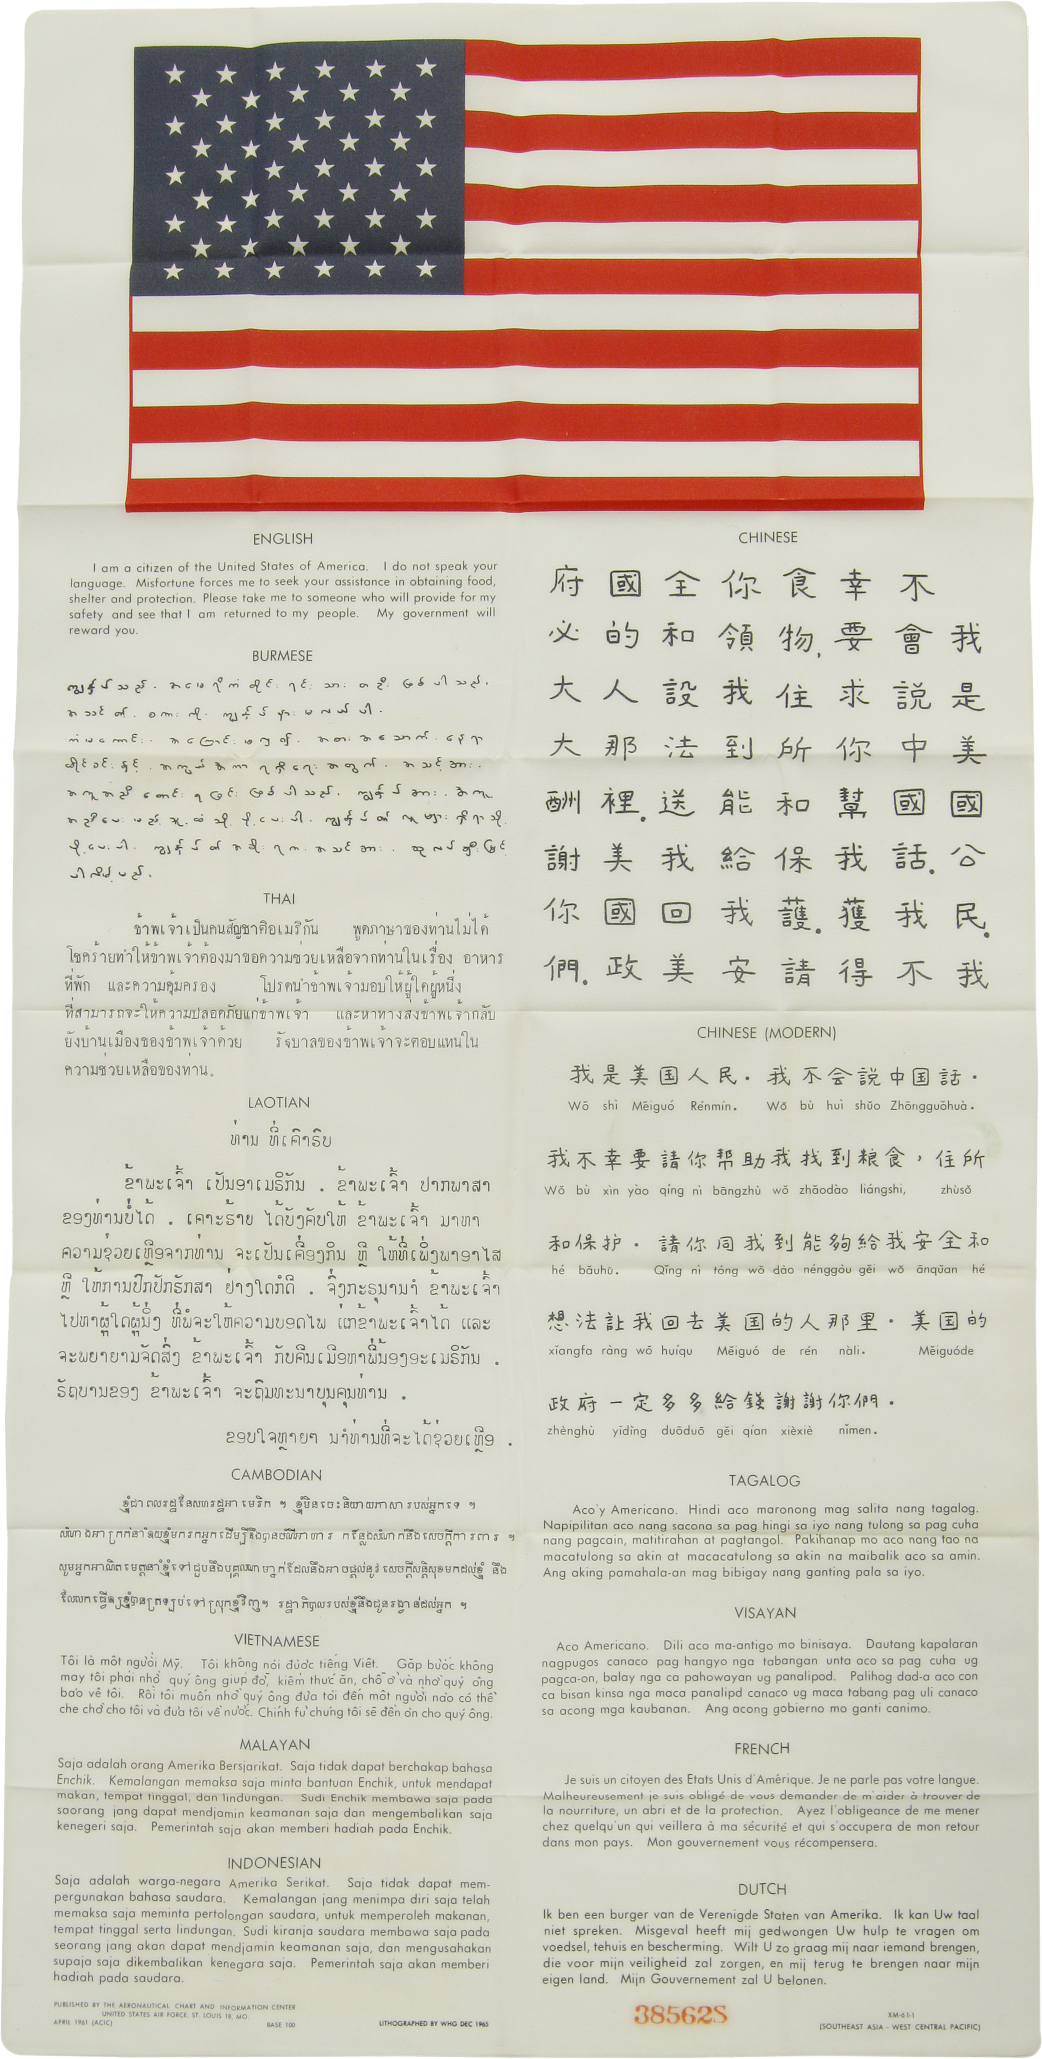 ENGLISH
I am a citizen of the United States of America. I do not speak your
language. Misfortune forces me to seek your assistance in obtaining food,
shelter and protection. Please take me to someone who will provide for my
safety and see that I am returned to my people. My government will
reward you.
BURMESE
THAI
ข้าพเจ้าเป็นคนสัญชาติอเมริกัน พูดภาษาของท่านไม่ได้
โชคร้ายทำให้ข้าพเจ้าต้องมาขอความช่วยเหลือจากท่านในเรื่อง อาหาร
ที่พัก และความคุ้มครอง โปรดนำข้าพเจ้ามอบให้ผู้ใดผู้หนึ่ง
ที่สามารถจะให้ความปลอดภัยแก่ข้าพเจ้า และหาทางส่งข้าพเจ้ากลับ
ยังบ้านเมืองของข้าพเจ้าด้วย รัฐบาลของข้าพเจ้าจะตอบแทนใน
ความช่วยเหลือของท่าน.
LAOTIAN
ທ່ານ ທີ່ເຄົາຣົບ
ຂ້າພະເຈົ້າ ເປັນອາເມຣິກັນ . ຂ້າພະເຈົ້າ ປາກພາສາ
ຂອງທ່ານບໍ່ໄດ້ . ເຄາະຮ້າຍ ໄດ້ບັງຄັບໃຫ້ ຂ້າພະເຈົ້າ ມາຫາ
ຄວາມຊ່ວຍເຫຼືອຈາກທ່ານ ຈະເປັນເຄື່ອງກິນ ຫຼື ໃຫ້ທີ່ເພິ່ງພາອາໄສ
ຫຼື ໃຫ້ການປົກປັກຮັກສາ ຢ່າງໃດກໍດີ . ຈົ່ງກະຣຸນານຳ ຂ້າພະເຈົ້າ
ໄປຫາຜູ້ໃດຜູ້ນຶ່ງ ທີ່ພໍຈະໃຫ້ຄວາມປອດໄພ ແກ່ຂ້າພະເຈົ້າໄດ້ ແລະ
ຈະພຍາຍາມຈັດສົ່ງ ຂ້າພະເຈົ້າ ກັບຄືນເມືອຫາພີ່ນ້ອງອະເມຣິກັນ .
ຣັຖບານຂອງ ຂ້າພະເຈົ້າ ຈະຖິມທະນາບຸນຄຸນທ່ານ .
ຂອບໃຈຫຼາຍໆ ນຳທ່ານທີ່ຈະໄດ້ຊ່ວຍເຫຼືອ .
CAMBODIAN
ខ្ញុំជាពលរដ្ឋនៃសហរដ្ឋអាមេរិក ។ ខ្ញុំមិនចេះនិយាយភាសារបស់អ្នកទេ ។
VIETNAMESE
Tôi là một người Mỹ. Tôi không nói được tiếng Việt. Gặp bước không
may tôi phải nhờ quý ông giúp đỡ, kiếm thức ăn, chỗ ở và nhờ quý ông
bảo vệ tôi. Rồi tôi muốn nhờ quý ông đưa tôi đến một người nào có thể
che chở cho tôi và đưa tôi về nước. Chính fủ chúng tôi sẽ đền ơn cho quý ông.
MALAYAN
Saja adalah orang Amerika Bersjarikat. Saja tidak dapat berchakap bahasa
Enchik. Kemalangan memaksa saja minta bantuan Enchik, untuk mendapat
makan, tempat tinggal, dan lindungan. Sudi Enchik membawa saja pada
saorang jang dapat mendjamin keamanan saja dan mengembalikan saja
kenegeri saja. Pemerintah saja akan memberi hadiah pada Enchik.
INDONESIAN
Saja adalah warga-negara Amerika Serikat. Saja tidak dapat mem-
pergunakan bahasa saudara. Kemalangan jang menimpa diri saja telah
memaksa saja meminta pertolongan saudara, untuk memperoleh makanan,
tempat tinggal serta lindungan. Sudi kiranja saudara membawa saja pada
seorang jang akan dapat mendjamin keamanan saja, dan mengusahakan
supaja saja dikembalikan kenegara saja. Pemerintah saja akan memberi
hadiah pada saudara.
PUBLISHED BY THE AERONAUTICAL CHART AND INFORMATION CENTER
UNITED STATES AIR FORCE, ST. LOUIS 18, MO.
APRIL 1961 (ACIC) BASE 100 LITHOGRAPHED BY WHG DEC 1965
CHINESE
我是美國公民.我
不會説中國話.我不
幸要求你幫我獲得
食物,住所和保護.請
你領我到能給我安
全和設法送我回美
國的人那裡.美國政
府必大大酬謝你們.
CHINESE (MODERN)
我是美国人民.我不会説中国話.
Wǒ shì Měiguó Rénmín. Wǒ bù huì shūo Zhōngguōhuà.
我不幸要請你帮助我找到粮食,住所
Wǒ bù xìn yào qíng nì bāngzhù wǒ zhǎodào liángshi, zhùsǒ
和保护.請你同我到能夠給我安全和
hé bǎuhù. Qǐng nì tóng wǒ dào nénggòu gěi wǒ ānqüan hé
想法讓我回去美国的人那里.美国的
xǐangfa ràng wǒ huíqu Měiguó de rén nàli. Měiguóde
政府一定多多給錢謝謝你們.
zhènghù yīdìng duōduō gěi qían xièxiè nǐmen.
TAGALOG
Aco'y Americano. Hindi aco maronong mag salita nang tagalog.
Napipilitan aco nang sacona sa pag hingi sa iyo nang tulong sa pag cuha
nang pagcain, matitirahan at pagtangol. Pakihanap mo aco nang tao na
macatulong sa akin at macacatulong sa akin na maibalik aco sa amin.
Ang aking pamahala-an mag bibigay nang ganting pala sa iyo.
VISAYAN
Aco Americano. Dili aco ma-antigo mo binisaya. Dautang kapalaran
nagpugos canaco pag hangyo nga tabangan unta aco sa pag cuha ug
pagca-on, balay nga ca pahowayan ug panalipod. Palihog dad-a aco con
ca bisan kinsa nga maca panalipd canaco ug maca tabang pag uli canaco
sa acong mga kaubanan. Ang acong gobierno mo ganti canimo.
FRENCH
Je suis un citoyen des Etats Unis d'Amérique. Je ne parle pas votre langue.
Malheureusement je suis obligé de vous demander de m'aider à trouver de
la nourriture, un abri et de la protection. Ayez l'obligeance de me mener
chez quelqu'un qui veillera à ma sécurité et qui s'occupera de mon retour
dans mon pays. Mon gouvernement vous récompensera.
DUTCH
Ik ben een burger van de Verenigde Staten van Amerika. Ik kan Uw taal
niet spreken. Misgeval heeft mij gedwongen Uw hulp te vragen om
voedsel, tehuis en bescherming. Wilt U zo graag mij naar iemand brengen,
die voor mijn veiligheid zal zorgen, en mij terug te brengen naar mijn
eigen land. Mijn Gouvernement zal U belonen.
38562S
XM-61-1
(SOUTHEAST ASIA - WEST CENTRAL PACIFIC)